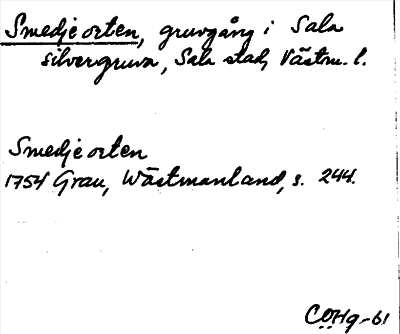 Smedjeorten, gruvgång i Sala
silvergruva, Sala stad, Västm. l.
Smedjeorten
1754 Grau, Wästmanland, s. 244.
COHg-61